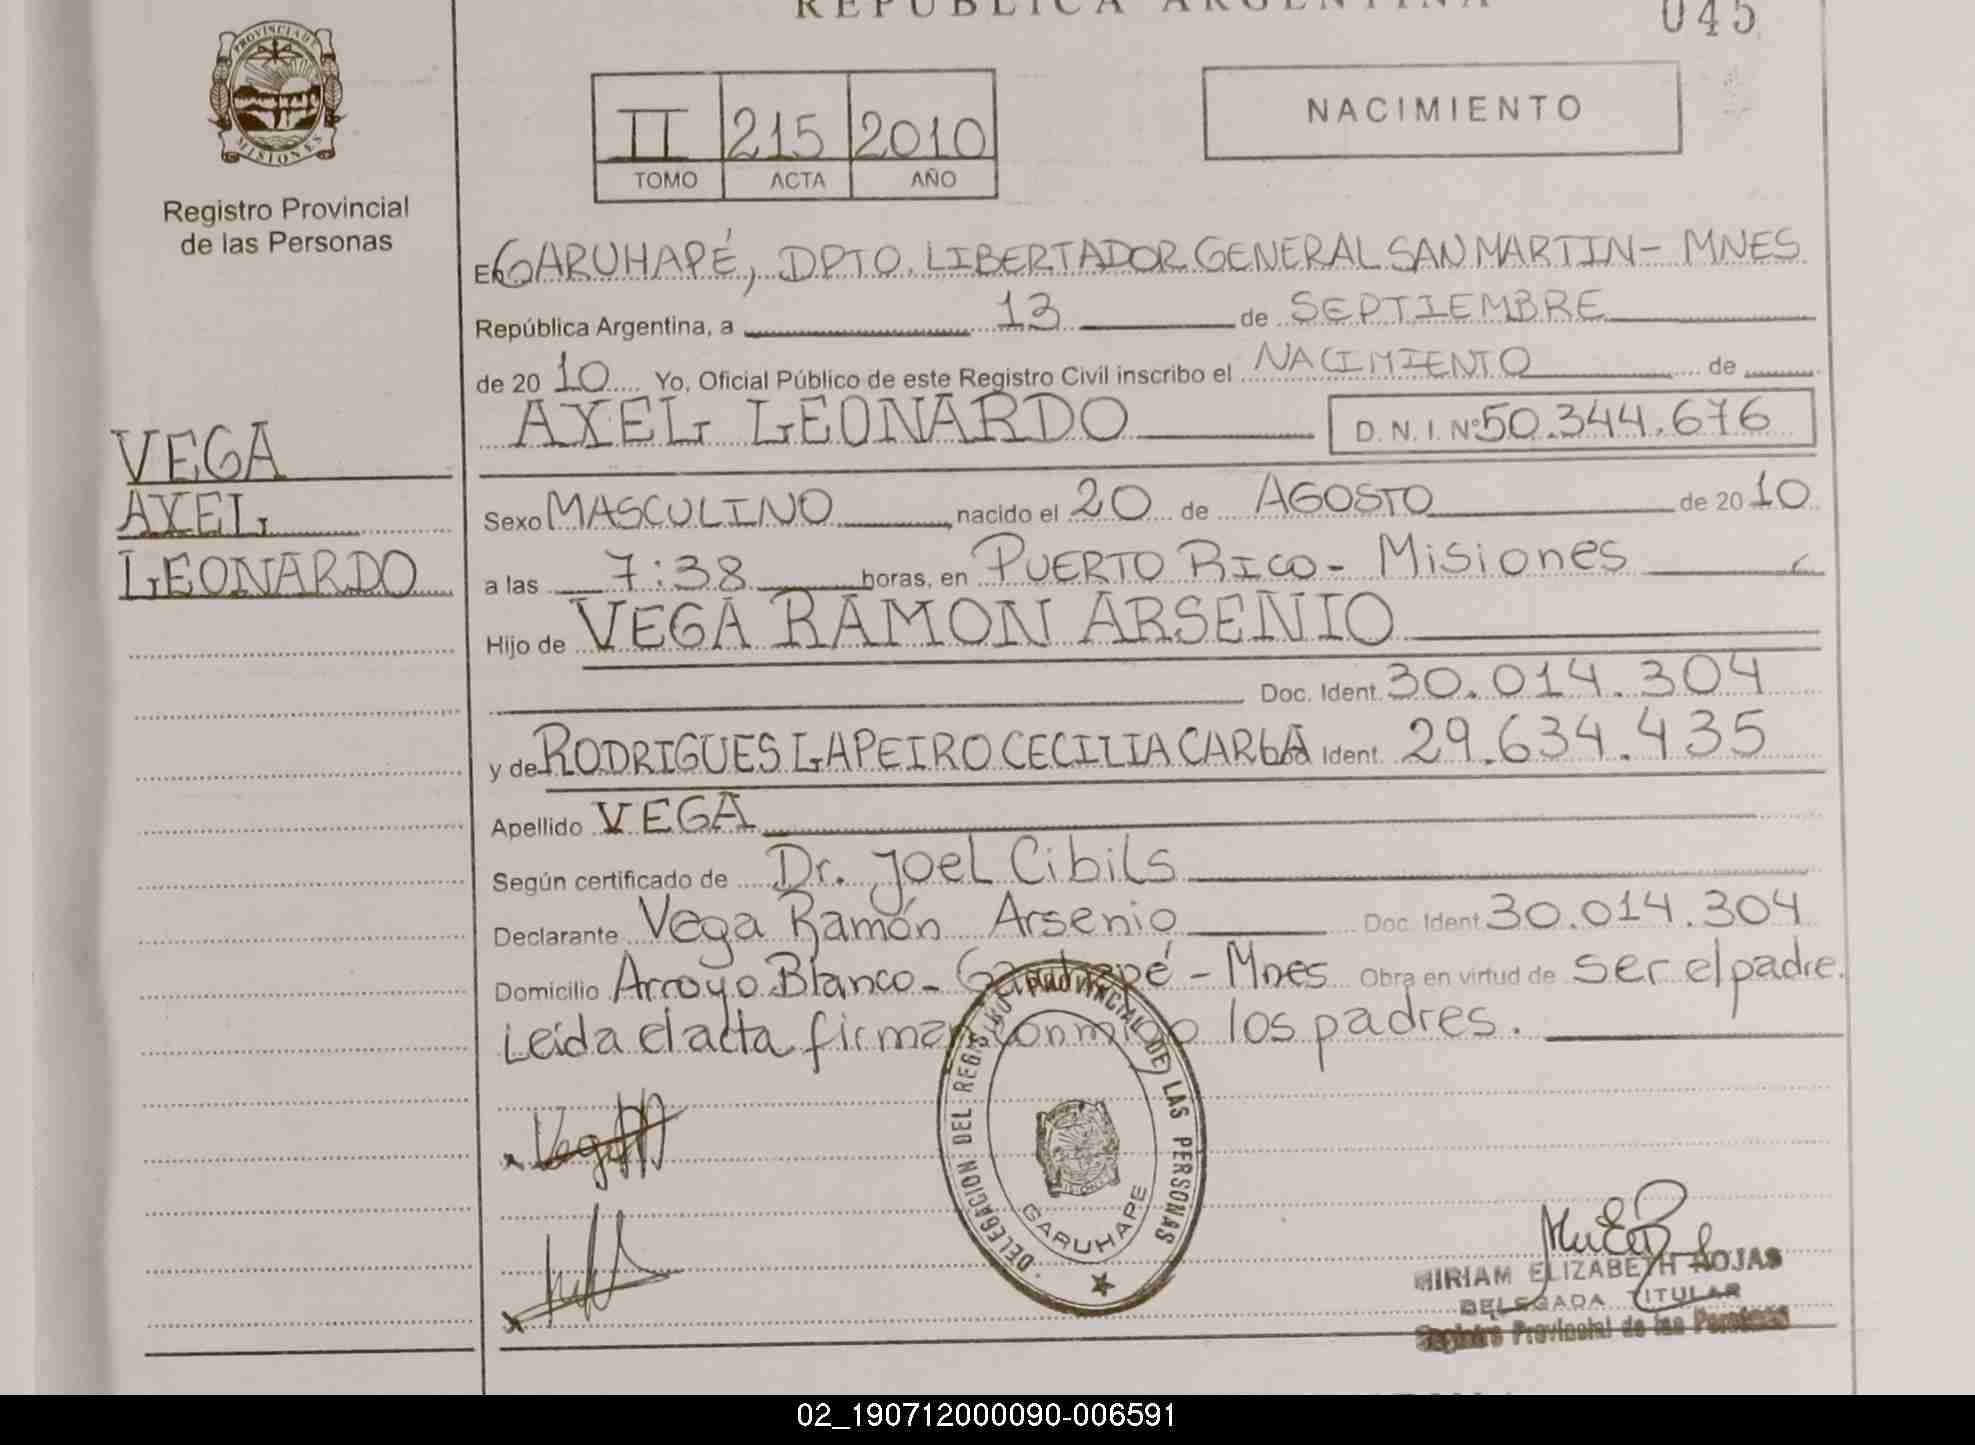 REPUBLICA ARGENTINA
045
PROVINCIA DE MISIONES
Registro Provincial
de las Personas
II 215 2010
TOMO ACTA AÑO
NACIMIENTO
En GARUHAPÉ, DPTO. LIBERTADOR GENERAL SAN MARTIN - MNES
República Argentina, a 13 de SEPTIEMBRE
de 20 10 Yo, Oficial Público de este Registro Civil inscribo el NACIMIENTO de
AXEL LEONARDO D. N. I. Nº 50.344.676
VEGA
AXEL
LEONARDO
Sexo MASCULINO, nacido el 20 de AGOSTO de 20 10
a las 7:38 horas, en PUERTO RICO - Misiones
Hijo de VEGA RAMON ARSENIO
Doc. Ident. 30.014.304
y de RODRIGUES LAPEIRO CECILIA CARLA Ident. 29.634.435
Apellido VEGA
Según certificado de Dr. Joel Cibils
Declarante Vega Ramón Arsenio Doc. Ident. 30.014.304
Domicilio Arroyo Blanco - Garuhapé - Mnes Obra en virtud de ser el padre.
Leída el acta firman conmigo los padres.
DELEGACION DEL REGISTRO PROVINCIAL DE LAS PERSONAS
GARUHAPE
MIRIAM ELIZABETH ROJAS
DELEGADA TITULAR
Registro Provincial de las Personas
02_190712000090-006591